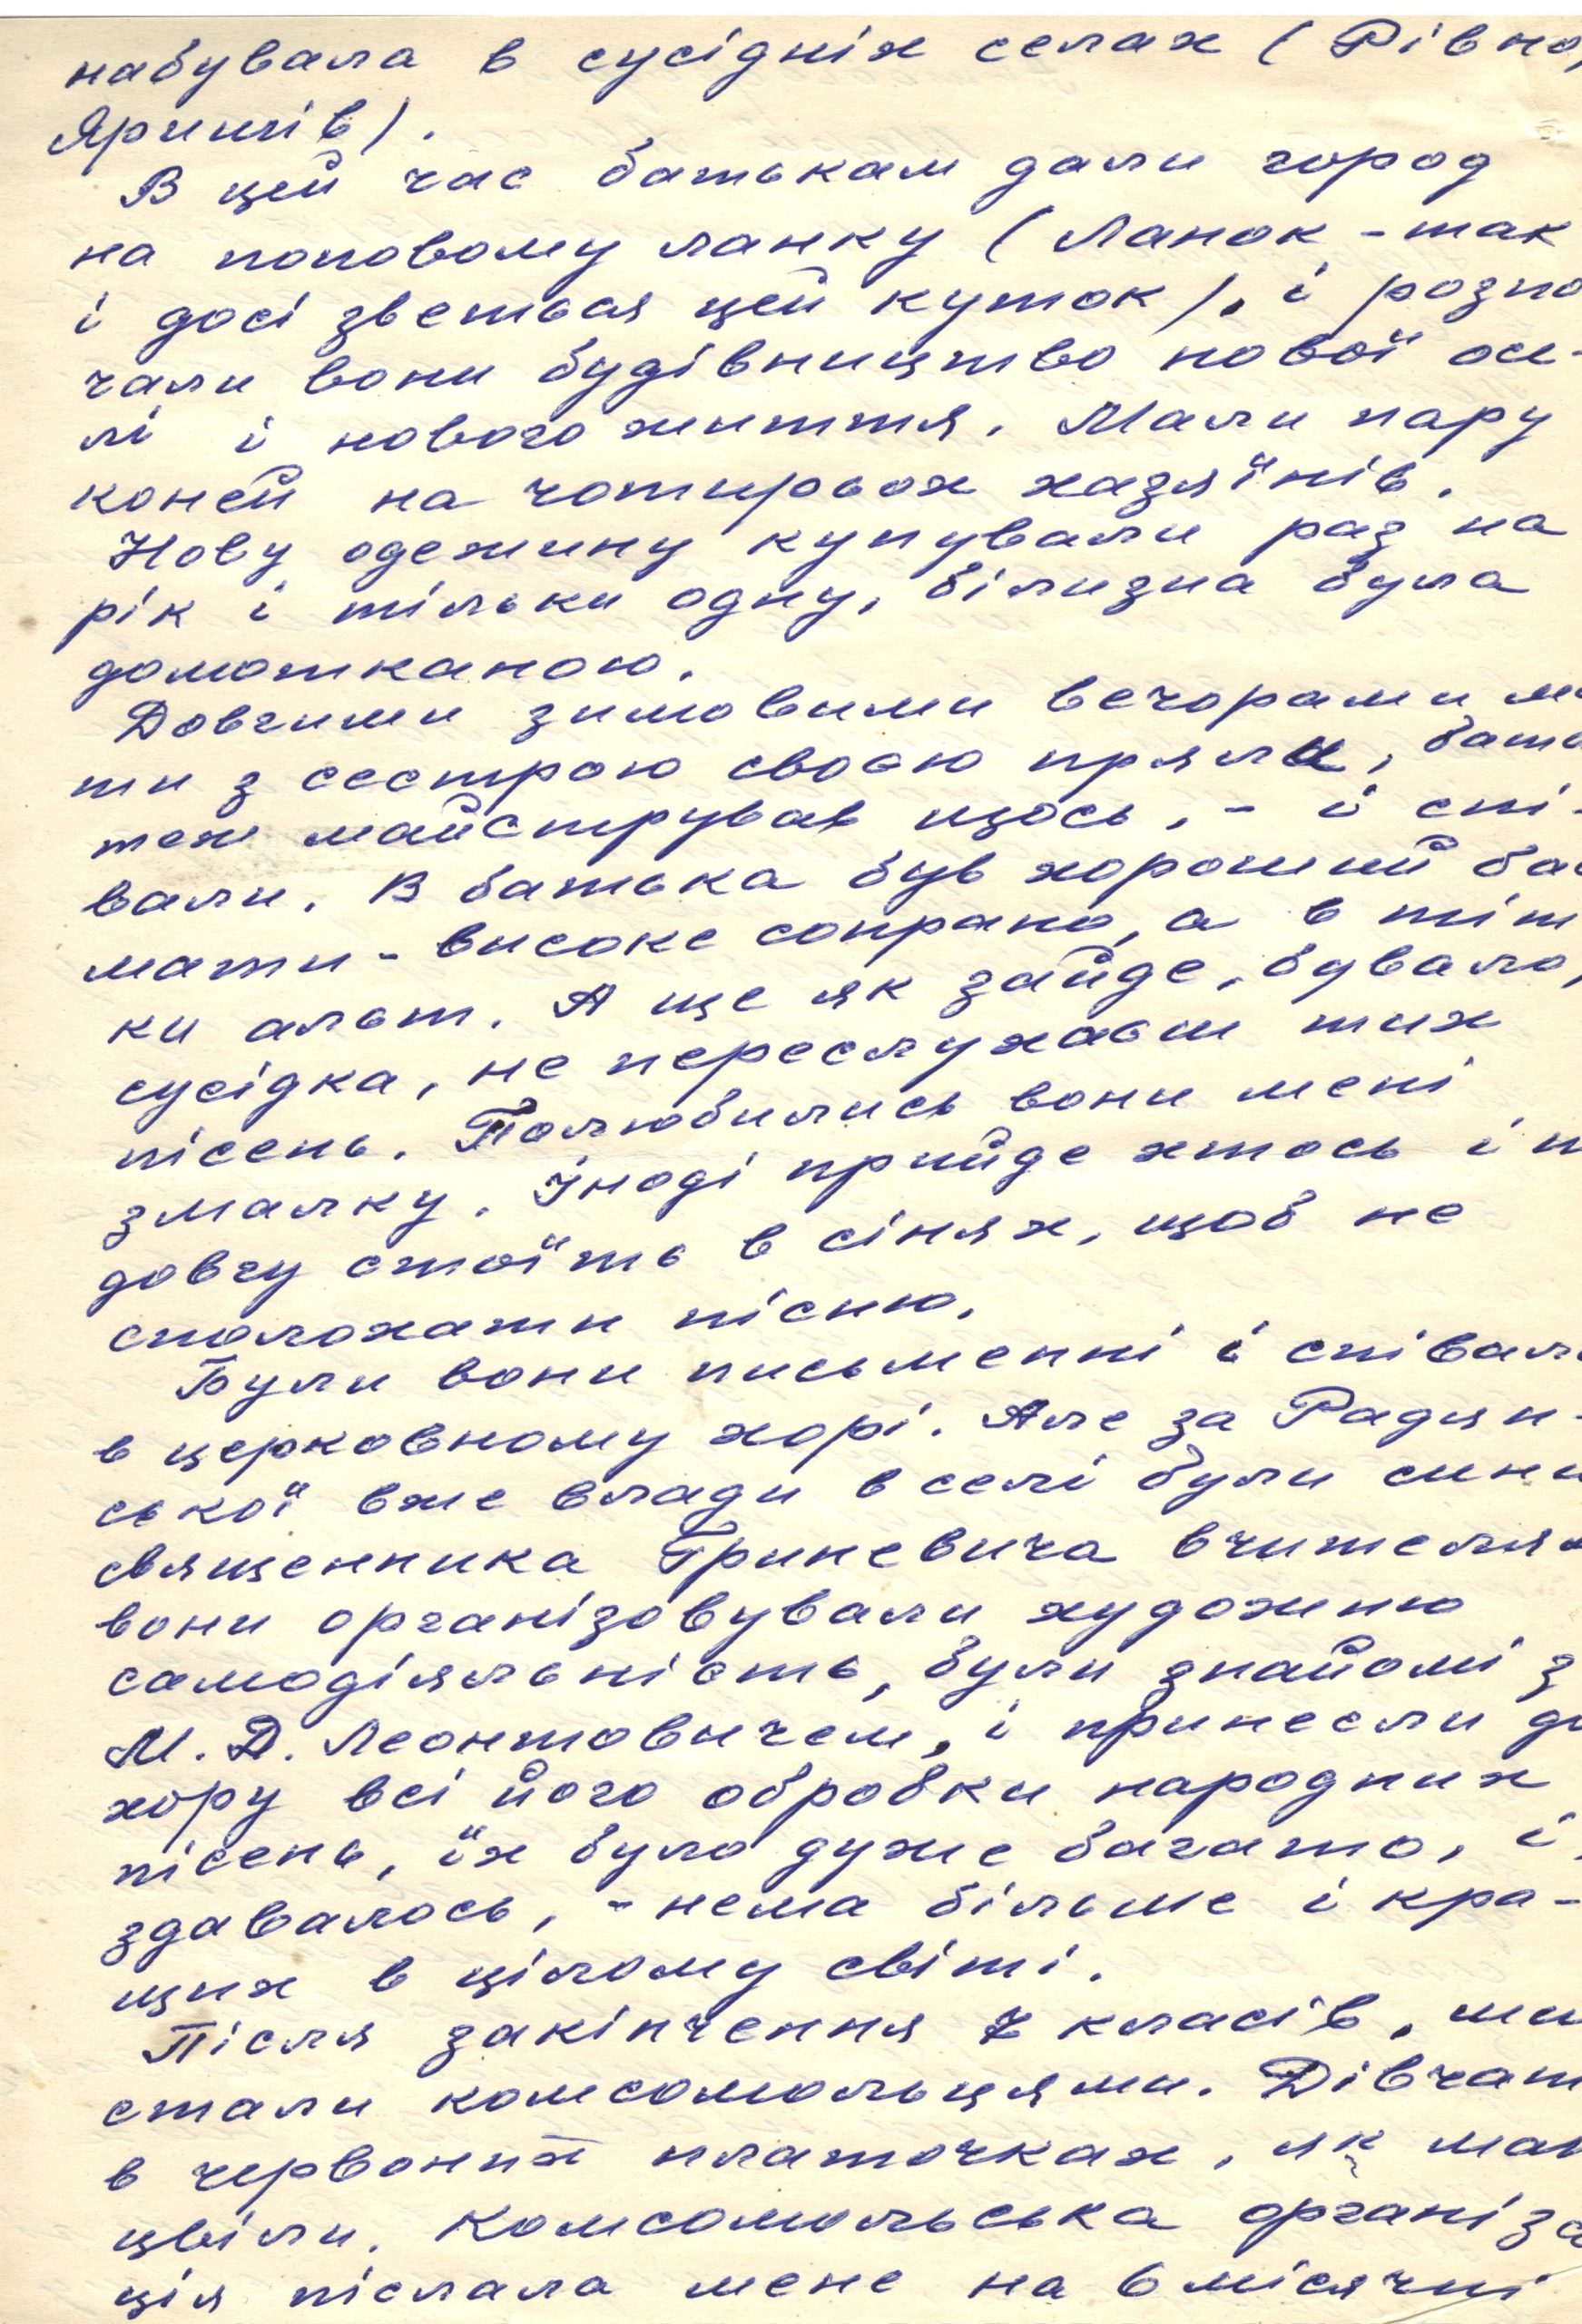 набувала в сусідніх селах (Рівно,
Яришів).
В цей час батькам дали город
на поповому ланку (Ланок - так
і досі зветься цей куток), і розпо
чали вони будівництво нової осе-
лі і нового життя. Мали пару
коней на чотирьох хазяїнів.
Нову одежину купували раз на
рік і тільки одну, білизна була
домотканою.
Довгими зимовими вечорами ма
ти з сестрою своєю пряли, бать
теж майстрував щось, - і спі-
вали. В батька був хороший бас
мати - високе сопрано, а в тіт
ки альт. А ще як зайде, бувало,
сусідка, не переслухаєш тих
пісень. Полюбились вони мені
змалку. Іноді прийде хтось і п
довгу стоїть в сінях, щоб не
сполохати пісню.
Були вони письменні і співали
в церковному хорі. Але за Радян-
ської вже влади в селі були сини
священника Гриневича вчителям
вони організовували художню
самодіяльність, були знайомі з
М. Д. Леонтовичем, і принесли до
хору всі його обробки народних
пісень, їх було дуже багато, і,
здавалось, - нема більше і кра-
щих в цілому світі.
Після закінчення 7 класів, ми
стали комсомольцями. Дівчат
в червоних платочках, як мак
цвіли. Комсомольська організа
ція післала мене на 6 місячні